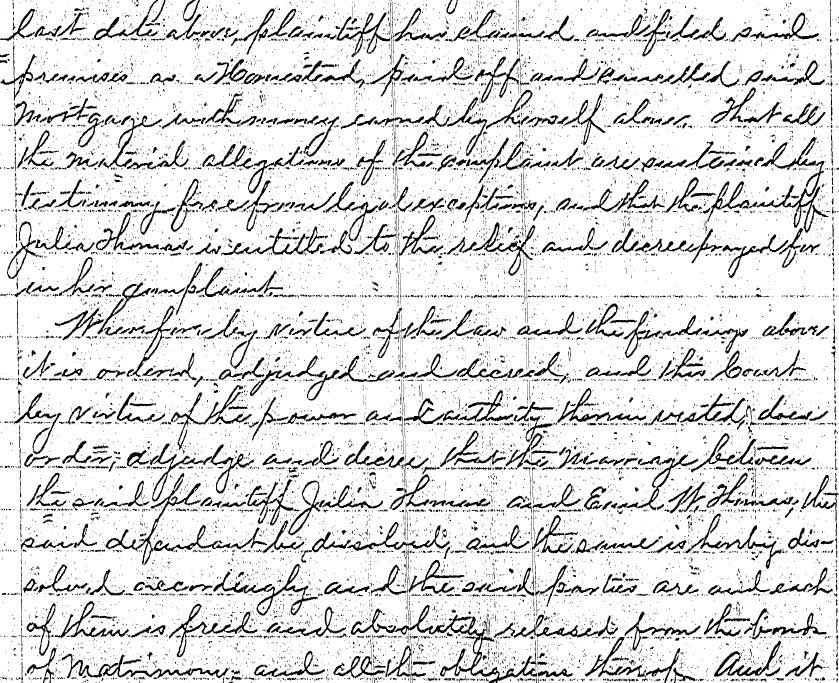 last date above, plaintiff has claimed and filed said
premises as a Homestead, paid off and cancelled said
Mortgage with money earned by himself alone. That all
the material allegations of the complaint are sustained by
testimony free from legal exceptions, and that the plaintiff
Julia Thomas is entitled to the relief and decree prayed for
in her complaint.
Wherefore by virtue of the law and the findings above
it is ordered, adjudged and decreed, and this Court
by virtue of the power and authority therein vested, does
order, adjudge and decree, that the Marriage between
the said plaintiff Julia Thomas and Emil W. Thomas, the
said defendant be dissolved, and the same is hereby dis-
solved accordingly and the said parties are and each
of them is freed and absolutely released from the bonds
of Matrimony and all the obligations thereof. And it